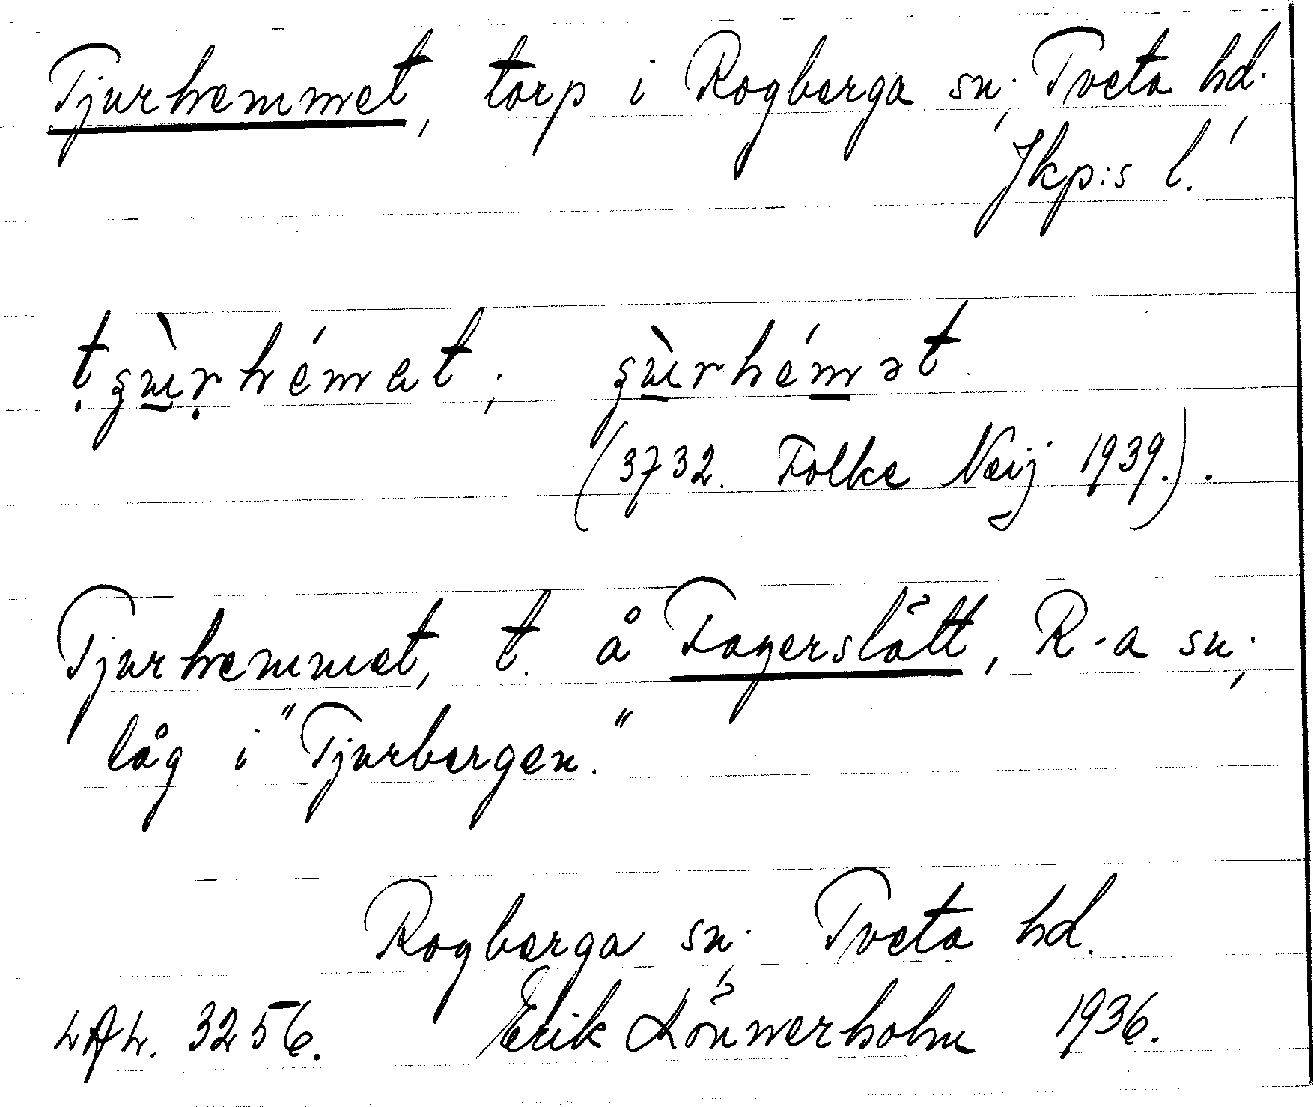 Tjurhemmet, torp i Rogberga sn; Tveta hd;
Jkp:s l.
(3732. Folke Neij 1939.).
Tjurhemmet, t. å Fagerslätt, R-a sn;
låg i "Tjurbergen."
Rogberga sn; Tveta hd.
LAL. 3256. Erik Lönnerholm 1936.